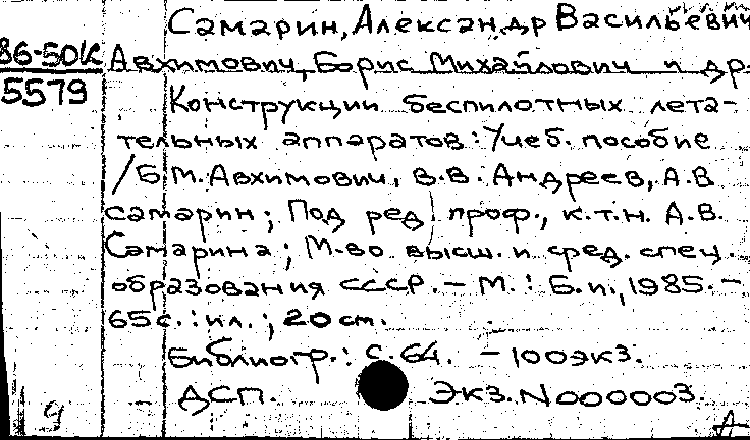 Самарин, Александр Васильевич
86-50К Авхимович, Борис Михайлович и др.
5579 Конструкции беспилотных лета-
тельных аппаратов: Учеб. пособие
/Б.М. Авхимович, В.В. Андреев, А.В.
Самарин; Под ред. проф., к.т.н. А.В.
Самарина; М-во высш. и сред. спец.
образования СССР. – М.: Б.и., 1985. –
65с.: ил.; 20 см.
Библиогр.: с. 64. – 100 экз.
– ДСП. Экз. N 000003.